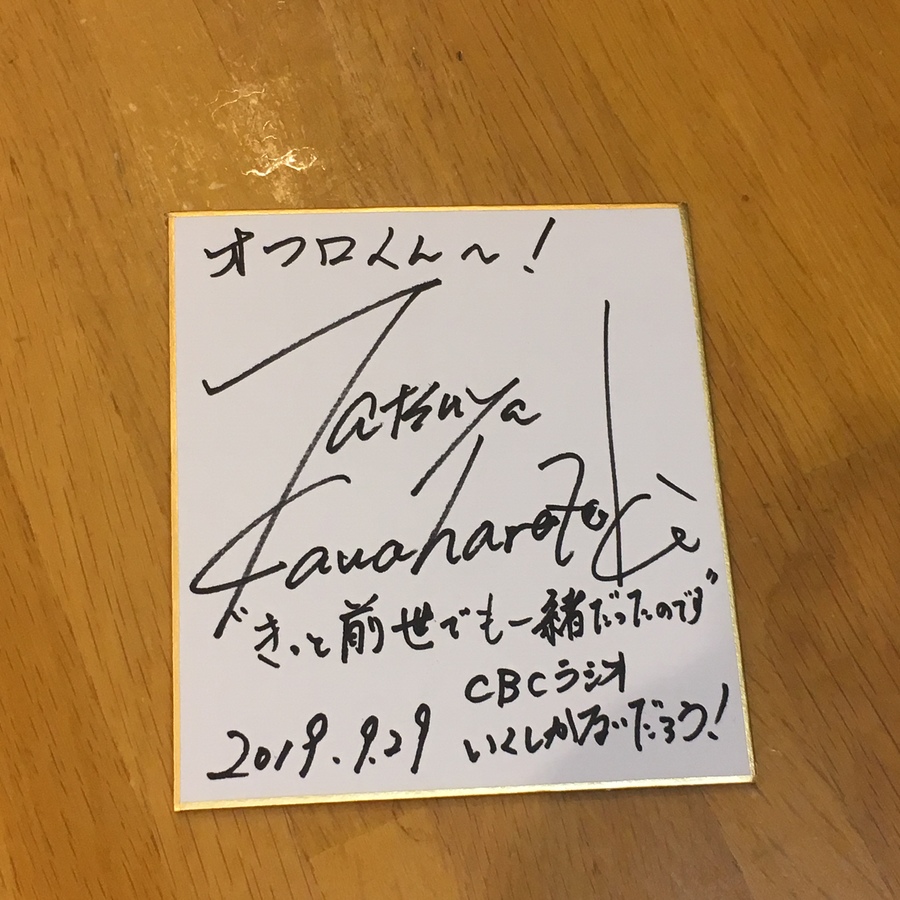 オフロくん〜!
Tatsuya
Kawaharazuki
"きっと前世でも一緒だったのです"
CBCラジオ
いくしかないだろう!
2019.9.29